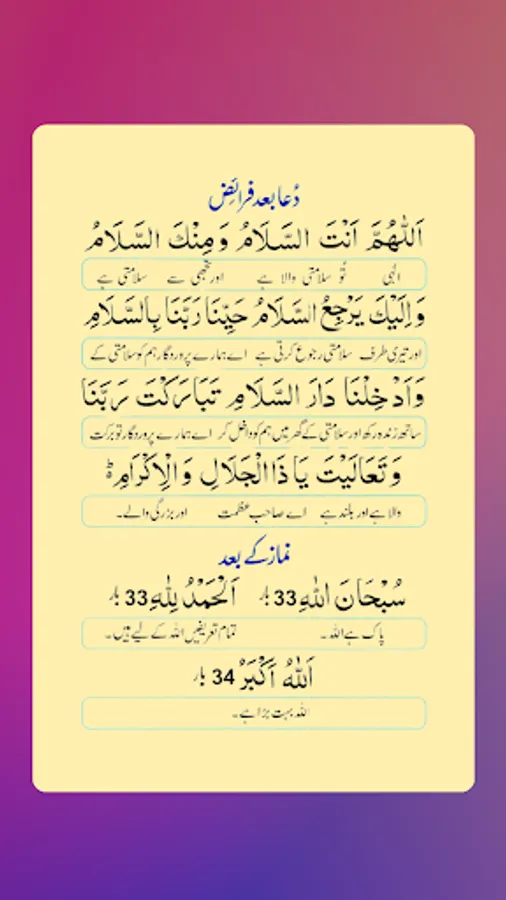 دُعا بعد فرائض
اَللّٰهُمَّ اَنْتَ السَّلَامُ وَمِنْكَ السَّلَامُ
الٰہی تُو سلامتی والا ہے اور تجھی سے سلامتی ہے
وَاِلَيْكَ يَرْجِعُ السَّلَامُ حَيِّنَا رَبَّنَا بِالسَّلَامِ
اور تیری طرف سلامتی رجوع کرتی ہے اے ہمارے پروردگار ہم کو سلامتی کے
وَاَدْخِلْنَا دَارَ السَّلَامِ تَبَارَكْتَ رَبَّنَا
ساتھ زندہ رکھ اور سلامتی کے گھر میں ہم کو داخل کر اے ہمارے پروردگار تو برکت
وَتَعَالَيْتَ يَا ذَا الْجَلَالِ وَالْاِكْرَامِ ؕ
والا ہے اور بلند ہے اے صاحب عظمت اور بزرگی والے۔
نماز کے بعد
سُبْحَانَ اللّٰهِ 33 بار اَلْحَمْدُ لِلّٰهِ 33 بار
پاک ہے اللہ۔ تمام تعریفیں اللہ کے لیے ہیں۔
اَللّٰهُ اَكْبَرُ 34 بار
اللہ بہت بڑا ہے۔